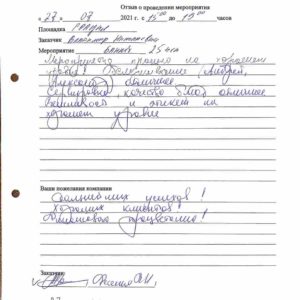 Отзыв о проведении мероприятия
« 27 » 07 2021 г. с 15 00 до 19 00 часов
Площадка
Заказчик Владимир
Мероприятие банкет 25 чел
Мероприятие прошло на хорошем
уровне! Обслуживание (Андрей,
Александр) отличное.
Сервировка, качество блюд отличное
на
хорошем уровне
Ваши пожелания компании
Дальнейших успехов!
Хороших клиентов!
Финансового процветания!
Заказчик